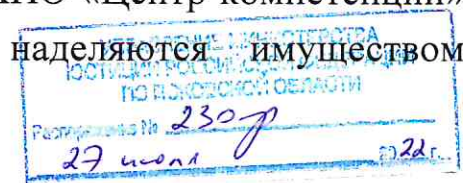 АНО «Центр компетенций»
наделяются имуществом
УПРАВЛЕНИЕ МИНИСТЕРСТВА
ЮСТИЦИИ РОССИЙСКОЙ ФЕДЕРАЦИИ
ПО ПСКОВСКОЙ ОБЛАСТИ
Распоряжение № 230-р
27 июля 2022 г.